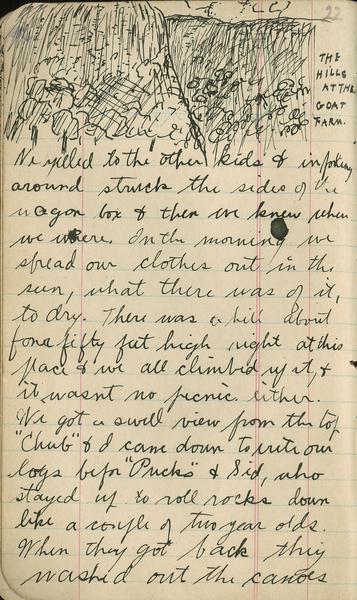 22
THE
HILLS
AT THE
GOAT
FARM.
We yelled to the other kids & in poking
around struck the sides of the
wagon box & then we knew where
we where. In the morning we
spread our clothes out in the
sun, what there was of it,
to dry. There was a hill about
fifty feet high right at this
place & we all climbed up it, &
it wasnt no picnic either.
We got a swell view from the top
"Chub" & I came down to write our
logs befor "Pucks" & Sid, who
stayed up to roll rocks down
like a couple of two year olds.
When they got back they
washed out the canoes